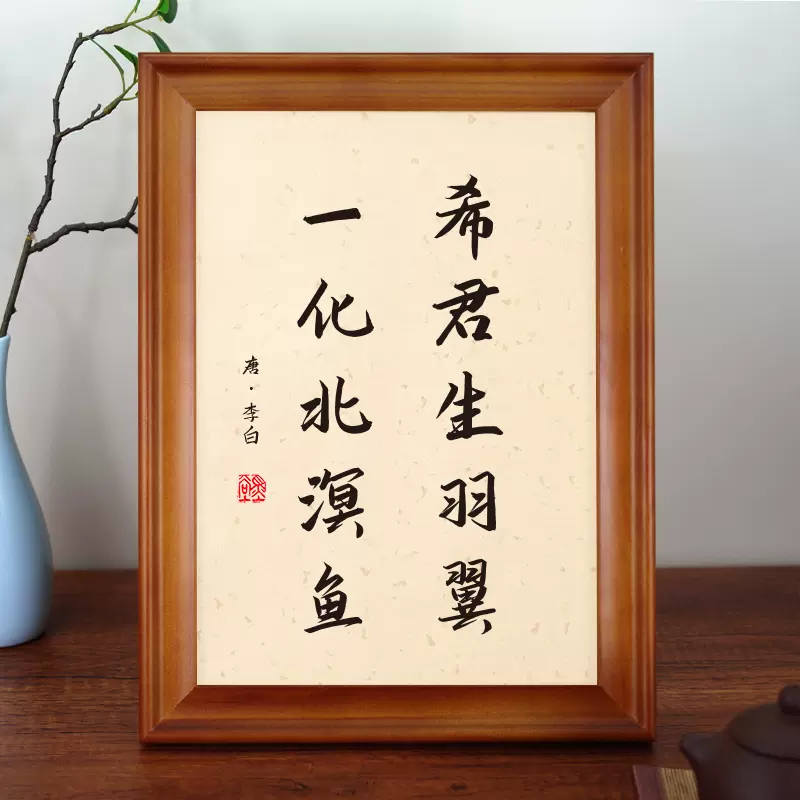 希君生羽翼
一化北溟鱼
唐·李白